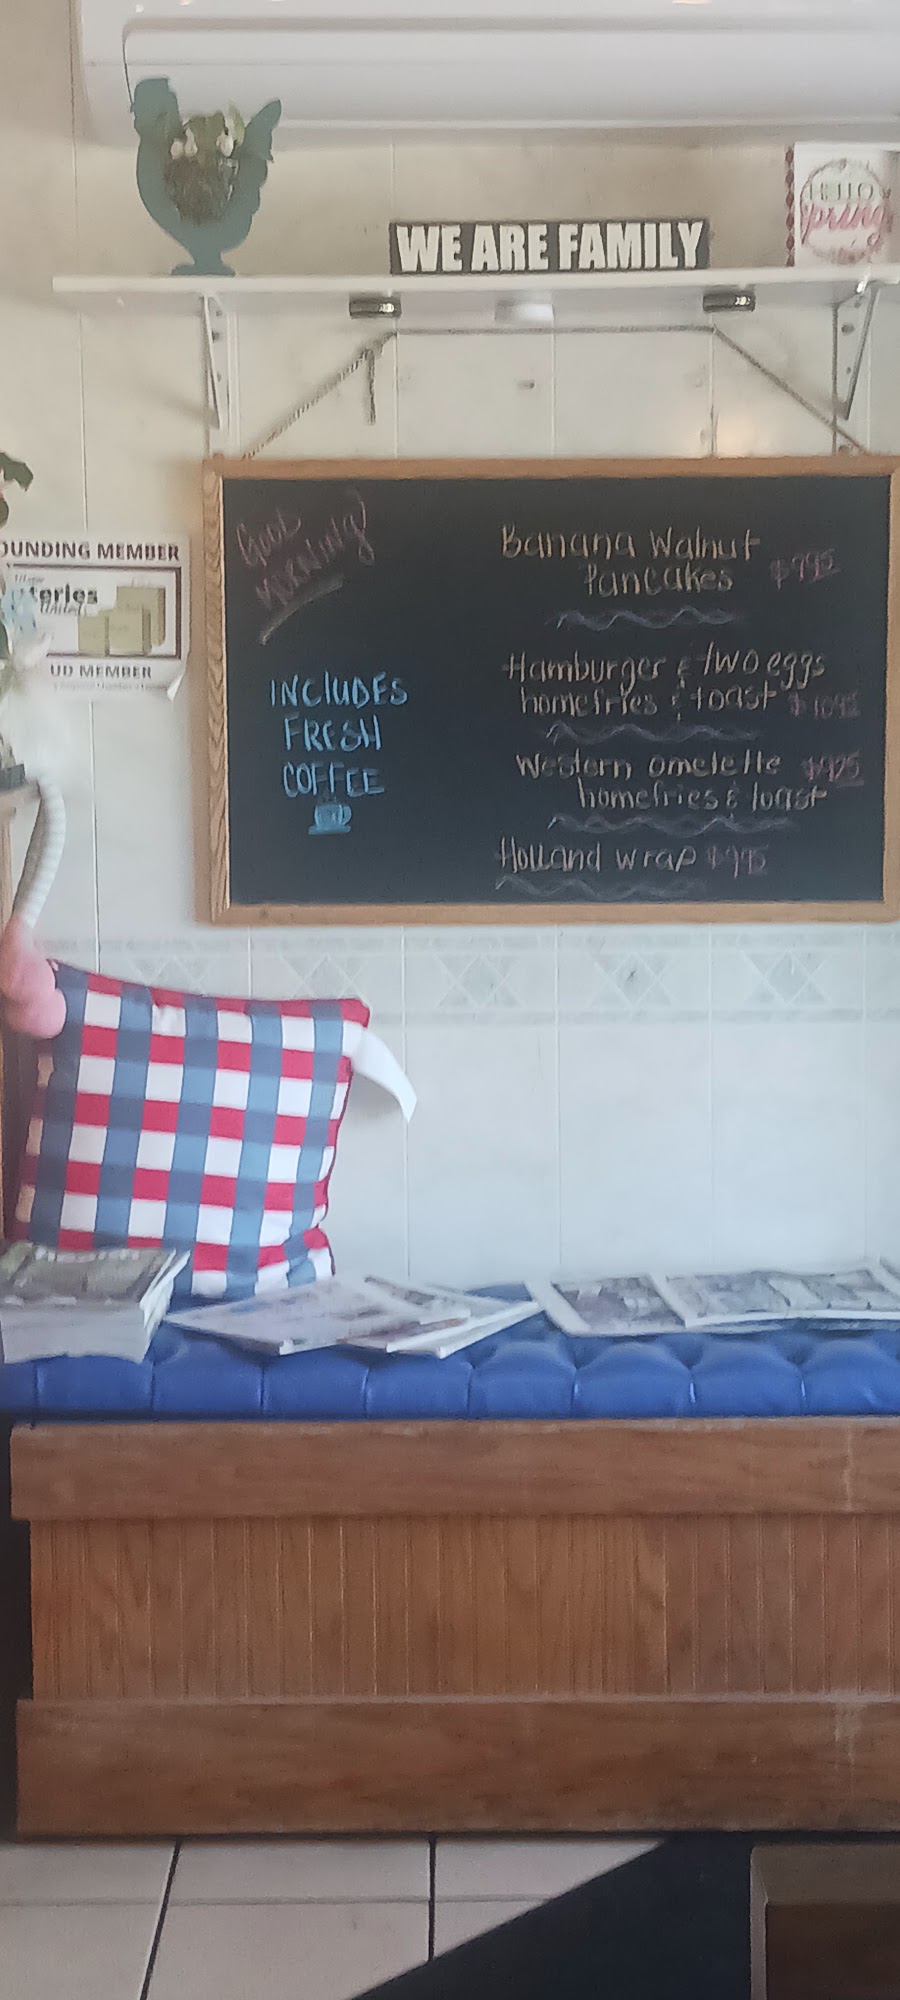 HELLO
Spring
WE ARE FAMILY
OUNDING MEMBER
teries
United
UD MEMBER
Good
Morning!
INCLUDES
FRESH
COFFEE
Banana Walnut
Pancakes $7.95
Hamburger & two eggs
homefries & toast $10.95
Western omelette
homefries & toast
Holland wrap $9.95